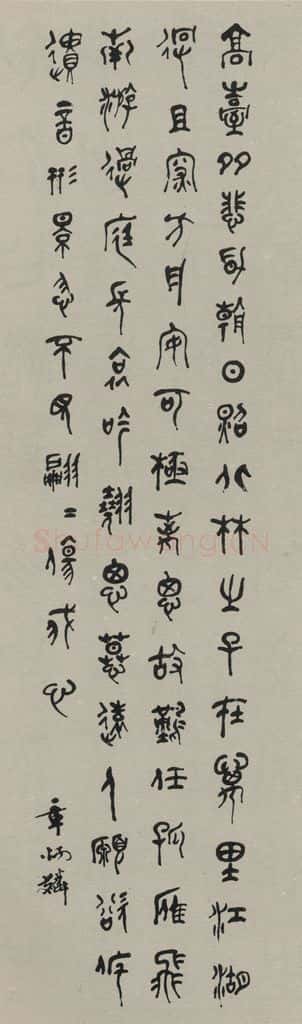 高臺多悲風朝日照北林之子在萬里江湖
迥且深方舟安可極離思故難任孤雁飛
南游過庭長哀吟翹思慕遠人願欲託
遺音形景忽不見翩〻傷我心
章炳麟
Shufawang.CN